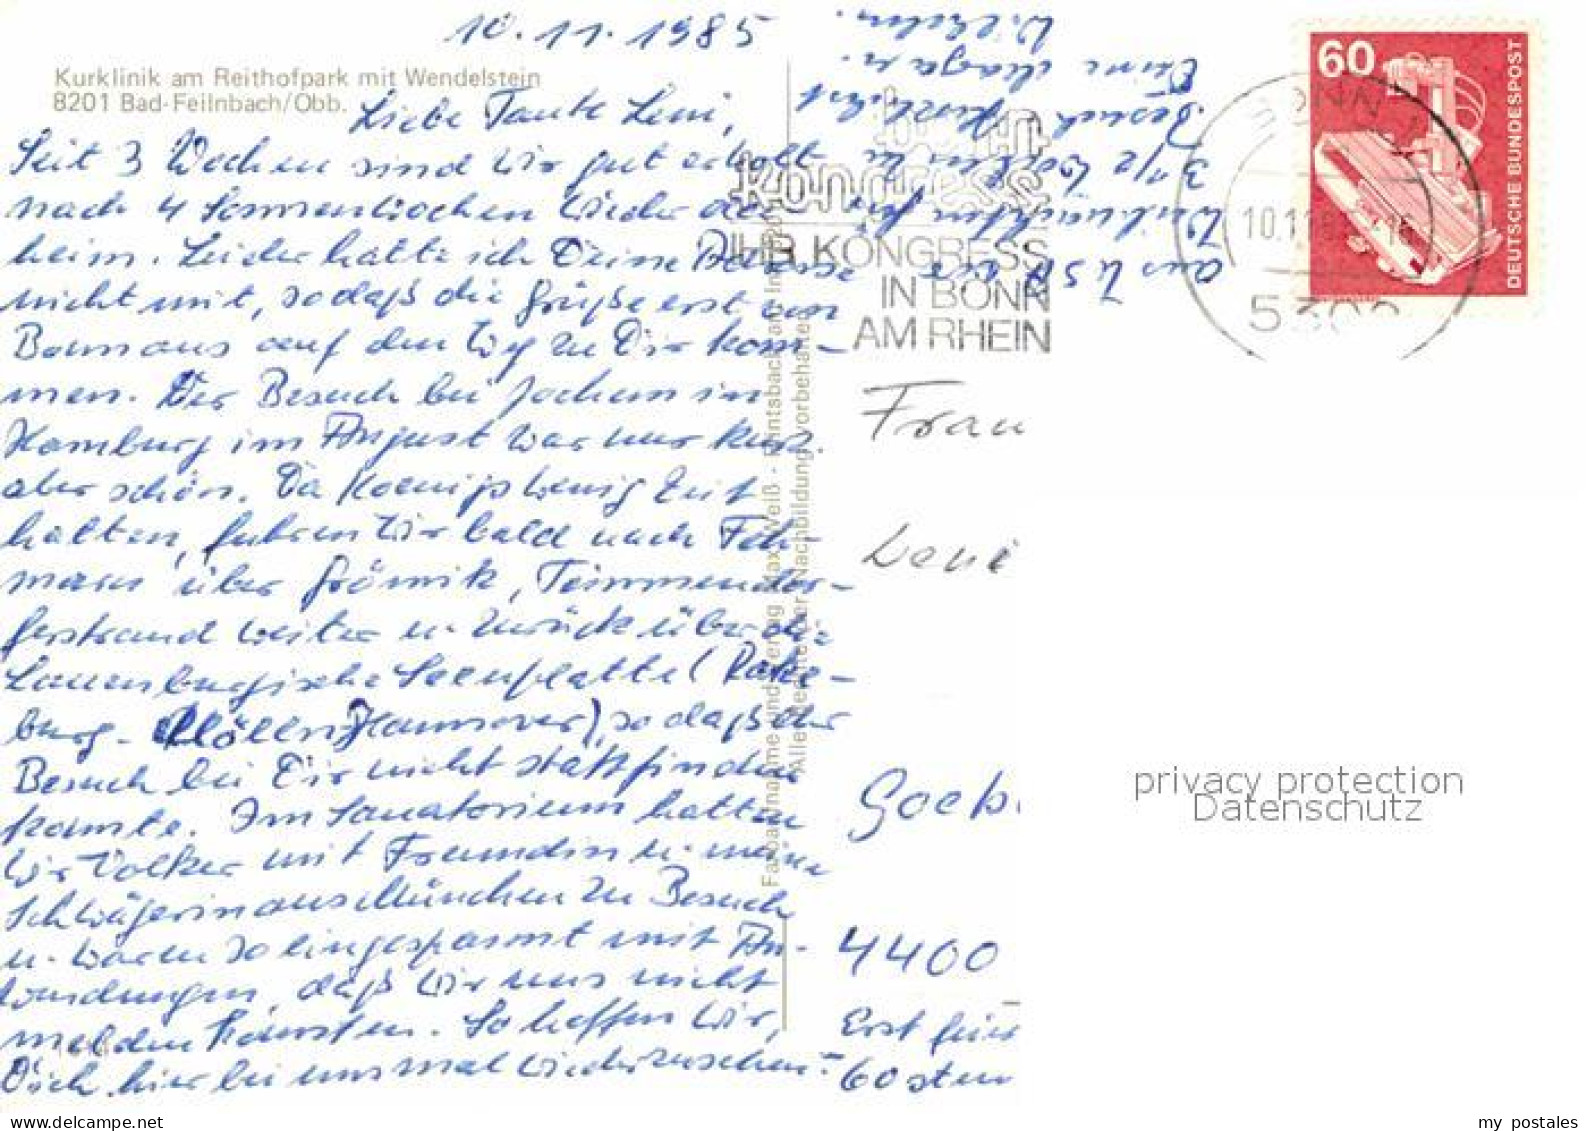 10.11.1985
Kurklinik am Reithofpark mit Wendelstein
8201 Bad-Feilnbach/Obb.
Liebe Tante Leni,
Seit 3 Wochen sind wir gut erholt
nach 4 Sonnenwochen wieder da-
heim. Leider hatte ich Deine Adresse
nicht mit, sodaß die Grüße erst von
Bonn aus auf den Weg zu Dir kom-
men. Der Besuch bei Jochem in
Hamburg im August war nur kurz
aber schön. Da Koenigs wenig Zeit
hatten, fuhren wir bald nach Feh-
marn über Grömitz, Timmendor-
ferstrand weiter u. zurück über die
Lauenburgische Seenplatte (Ratze-
burg - Mölln Hannover), so daß der
Besuch bei Dir nicht stattfinden
konnte. Im Sanatorium hatten
wir Volker mit Freundin u. meine
Schwägerin aus München zu Besuch
u. waren so eingespannt mit An-
wendungen, daß wir uns nicht
melden konnten. So hoffen wir,
Dich hier bei uns mal wiederzusehen.
Erst
60sten
aus USA
Weihnachten für
3 1/2 Wochen zu
Besuch
Wilhelm
60
DEUTSCHE BUNDESPOST
BONN
10.11.85
5300
bonn
kongress
IHR KONGRESS
IN BONN
AM RHEIN
Alle Rechte der Nachbildung vorbehalten
Frau
Leni
Goeb
4400
privacy protection
Datenschutz
my postales